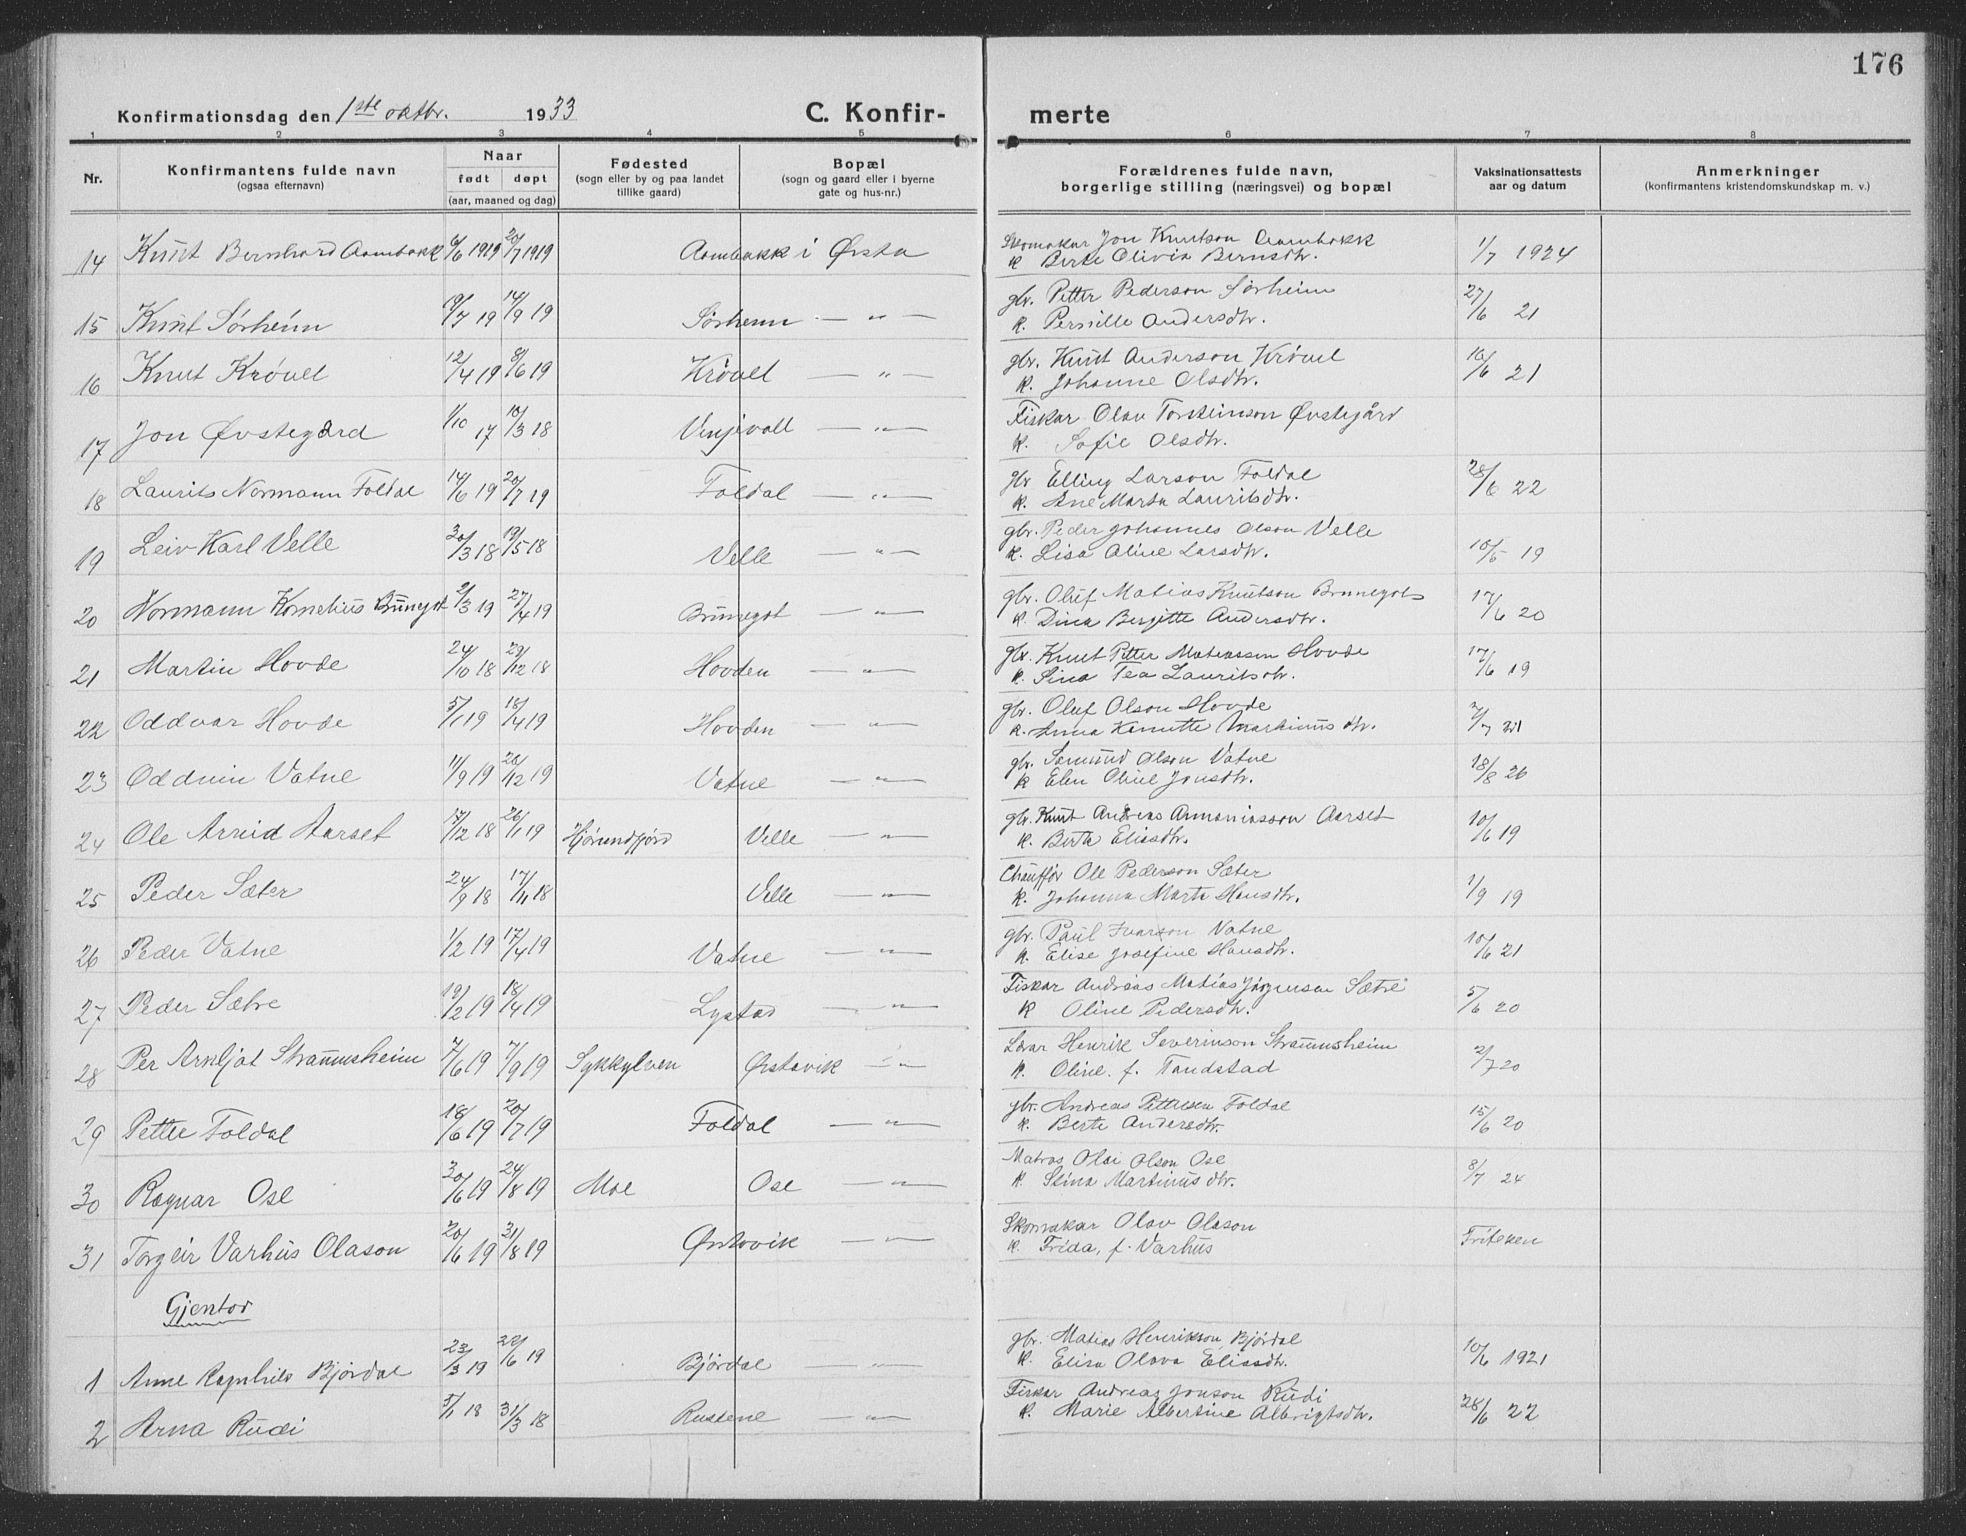 176
Konfirmationsdag den 1ste oktbr. 1933
C. Konfir-
merte
1 2 3 4 5 6 7 8
Nr.
Konfirmantens fulde navn
(ogsaa efternavn)
Naar
født døpt
(aar, maaned og dag)
Fødested
(sogn eller by og paa landet
tillike gaard)
Bopæl
(sogn og gaard eller i byerne
gate og hus-nr.)
Forældrenes fulde navn,
borgerlige stilling (næringsvei) og bopæl
Vaksinationsattests
aar og datum
Anmerkninger
(konfirmantens kristendomskundskap m. v.)
14 Knut Bernhard Aambakk 6/6 1919 20/7 1919 Aambakk i Ørsta Skomakar Jon Knutson Aambakk 1/7 1924
k Berte Olivia Bernsdtr.
15 Knut Sørheim 9/7 19 14/9 19 Sørheim — " — gbr. Petter Pederson Sørheim 27/6 21
k. Pernille Andersdtr.
16 Knut Krøvel 12/4 19 8/6 19 Krøvel — " — gbr. Knut Anderson Krøvel 16/6 21
k. Johanne Olsdtr.
17 Jon Øvstegård 1/10 17 10/3 18 Vinjevoll — " — Fiskar Olav Torsteinson Øvstegård
k. Sofie Olsdtr.
18 Laurits Normann Foldal 14/6 19 20/7 19 Foldal — " — gbr Elling Larson Foldal 28/6 22
k. Ane Marta Lauritsdtr.
19 Leiv Karl Velle 20/3 18 19/5 18 Velle — " — gbr. Peder Johannes Olson Velle 10/5 19
k. Lisa Oline Larsdtr.
20 Normann Kornelius Brunegot 2/3 19 27/4 19 Brunegot — " — gbr. Oluf Matias Knutson Brunegot 17/6 20
k. Dina Bergitte Andersdtr.
21 Martin Hovde 24/10 18 29/12 18 Hovden — " — gbr. Knut Petter Matiassen Hovde 17/6 19
k. Sina Tea Lauritsdtr.
22 Oddvar Hovde 5/1 19 18/4 19 Hovden — " — gbr. Oluf Olson Hovde 2/7 21
k. Anna Kanutte Martinus dtr.
23 Oddvin Vatne 11/9 19 26/12 19 Vatne — " — gbr. Samund Olson Vatne 18/8 26
k Elen Oline Jonsdtr.
24 Ole Arvid Aarset 17/12 18 26/1 19 Hjørundfjord Velle — " — gbr. Knut Andreas Ananiasson Aarset 10/6 19
k. Berta Eliasdtr.
25 Peder Sæter 24/9 18 17/11 18 Velle — " — Chauffør Ole Pederson Sæter 1/9 19
k. Johanna Marta Hansdtr.
26 Peder Vatne 1/2 19 17/4 19 Vatne — " — gbr. Paul Ivarson Vatne 10/6 21
k. Elise Josefine Hansdtr.
27 Peder Sætre 19/2 19 18/4 19 Lystad — " — Fiskar Andreas Matias Jørgensen Sætre 5/6 20
k Oline Pedersdtr.
28 Per Arnljot Straumsheim 7/6 19 7/9 19 Sykkylven Ørstavik — " — Lærar Henrik Severinson Straumsheim 2/7 20
k. Oline f. Tandstad
29 Petter Foldal 18/6 19 20/7 19 Foldal — " — gbr. Andreas Pettersen Foldal 15/6 20
k. Berte Andersdtr.
30 Ragnar Ose 30/6 19 24/8 19 Moe Ose — " — Matros Olai Olson Ose 8/7 24
k. Stina Martinus dtr.
31 Torgeir Varhus Olason 20/6 19 31/8 19 Ørstavik — " — Skomakar Olav Olason Friteken
k. Frida, f. Varhus
Gjentor
1 Anne Ragnhild Bjørdal 23/3 19 22/6 19 Bjørdal — " — gbr. Matias Henrikson Bjørdal 10/6 1921
k. Elisa Olava Eliasdtr.
2 Arna Rudi 5/1 18 31/3 18 Rustene — " — Fiskar Andreas Jonson Rudi 28/6 22
k. Marie Albertine Albrigtsdtr.